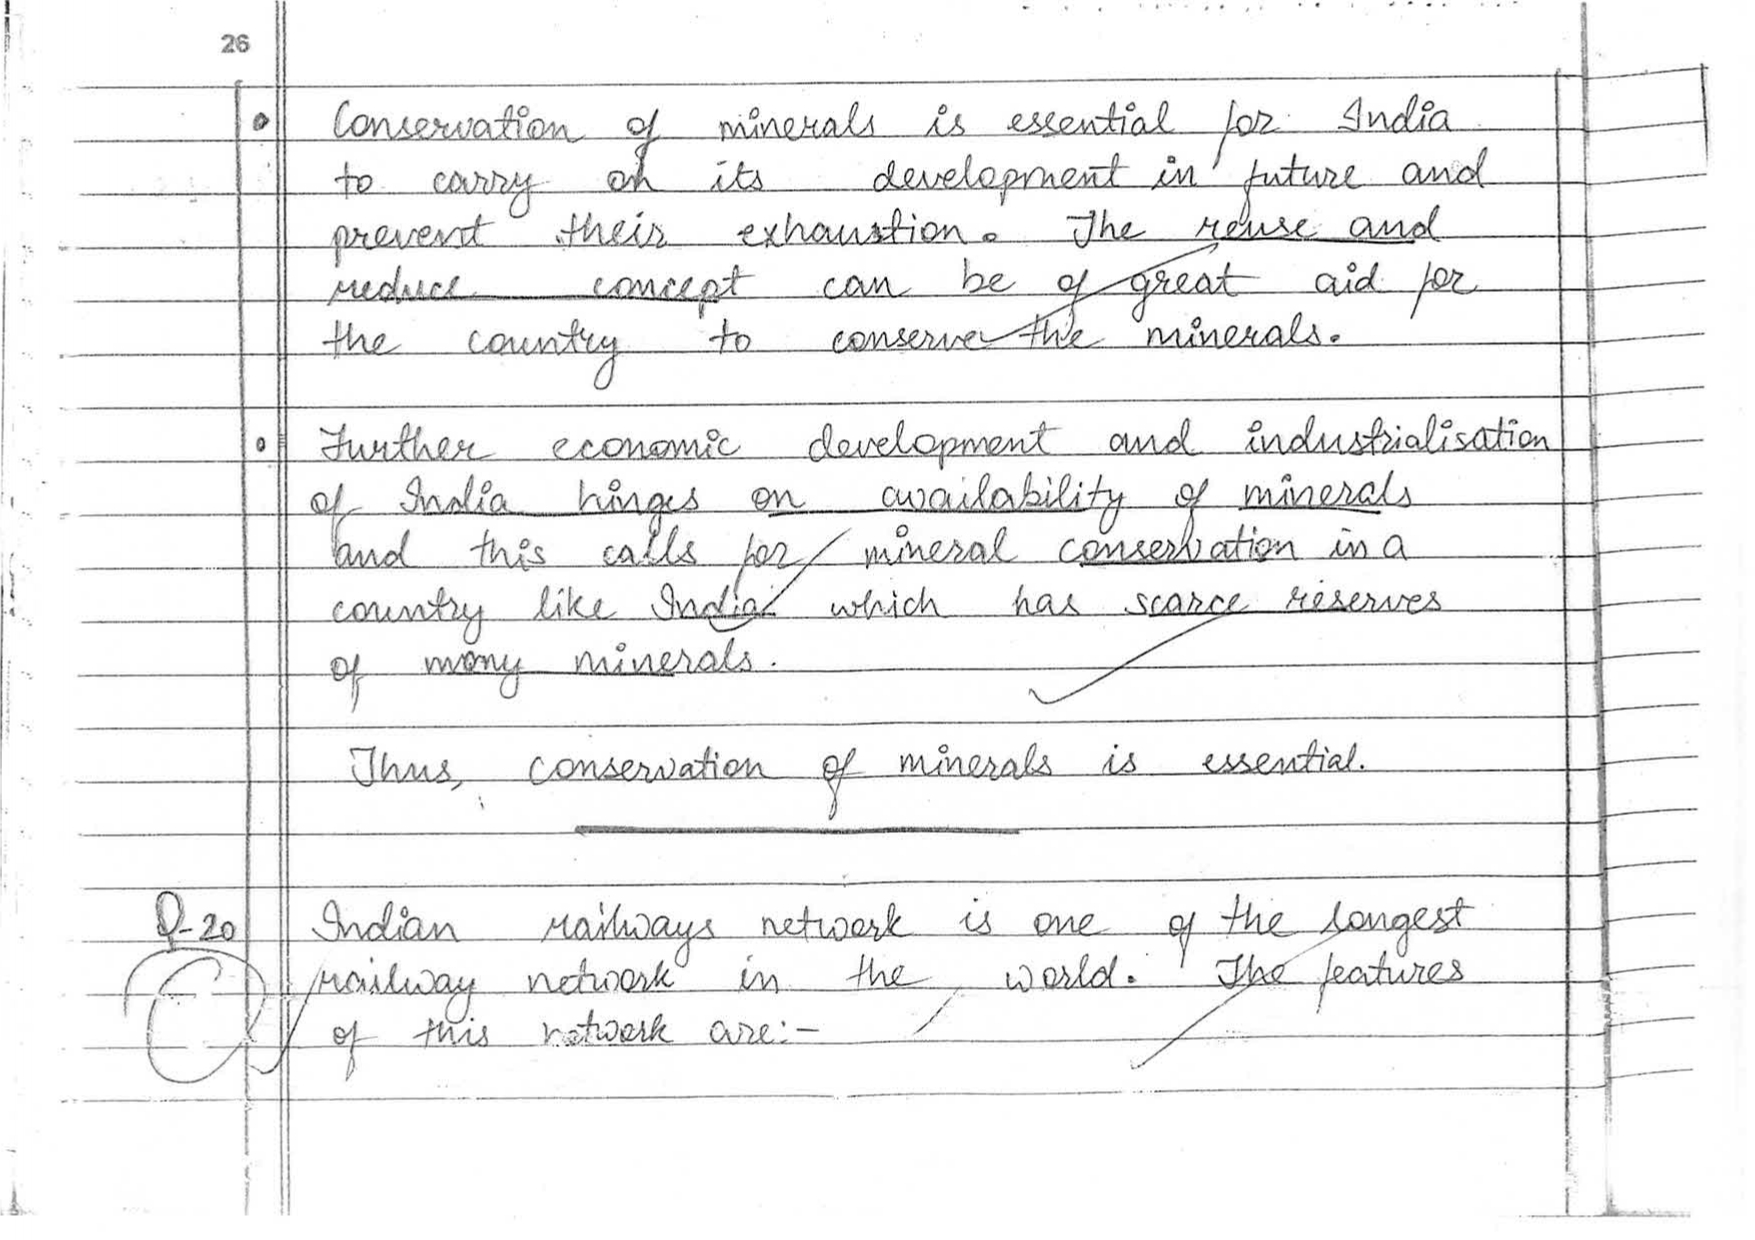 26
Conservation of minerals is essential for India
to carry on its development in future and
prevent their exhaustion. The reuse and
reduce concept can be of great aid for
the country to conserve the minerals.
Further economic development and industrialisation
of India hinges on availability of minerals
and this calls for mineral conservation in a
country like India which has scarce reserves
of many minerals.
Thus, conservation of minerals is essential.
Q-20 Indian railways network is one of the longest
railway network in the world. The features
of this network are:-